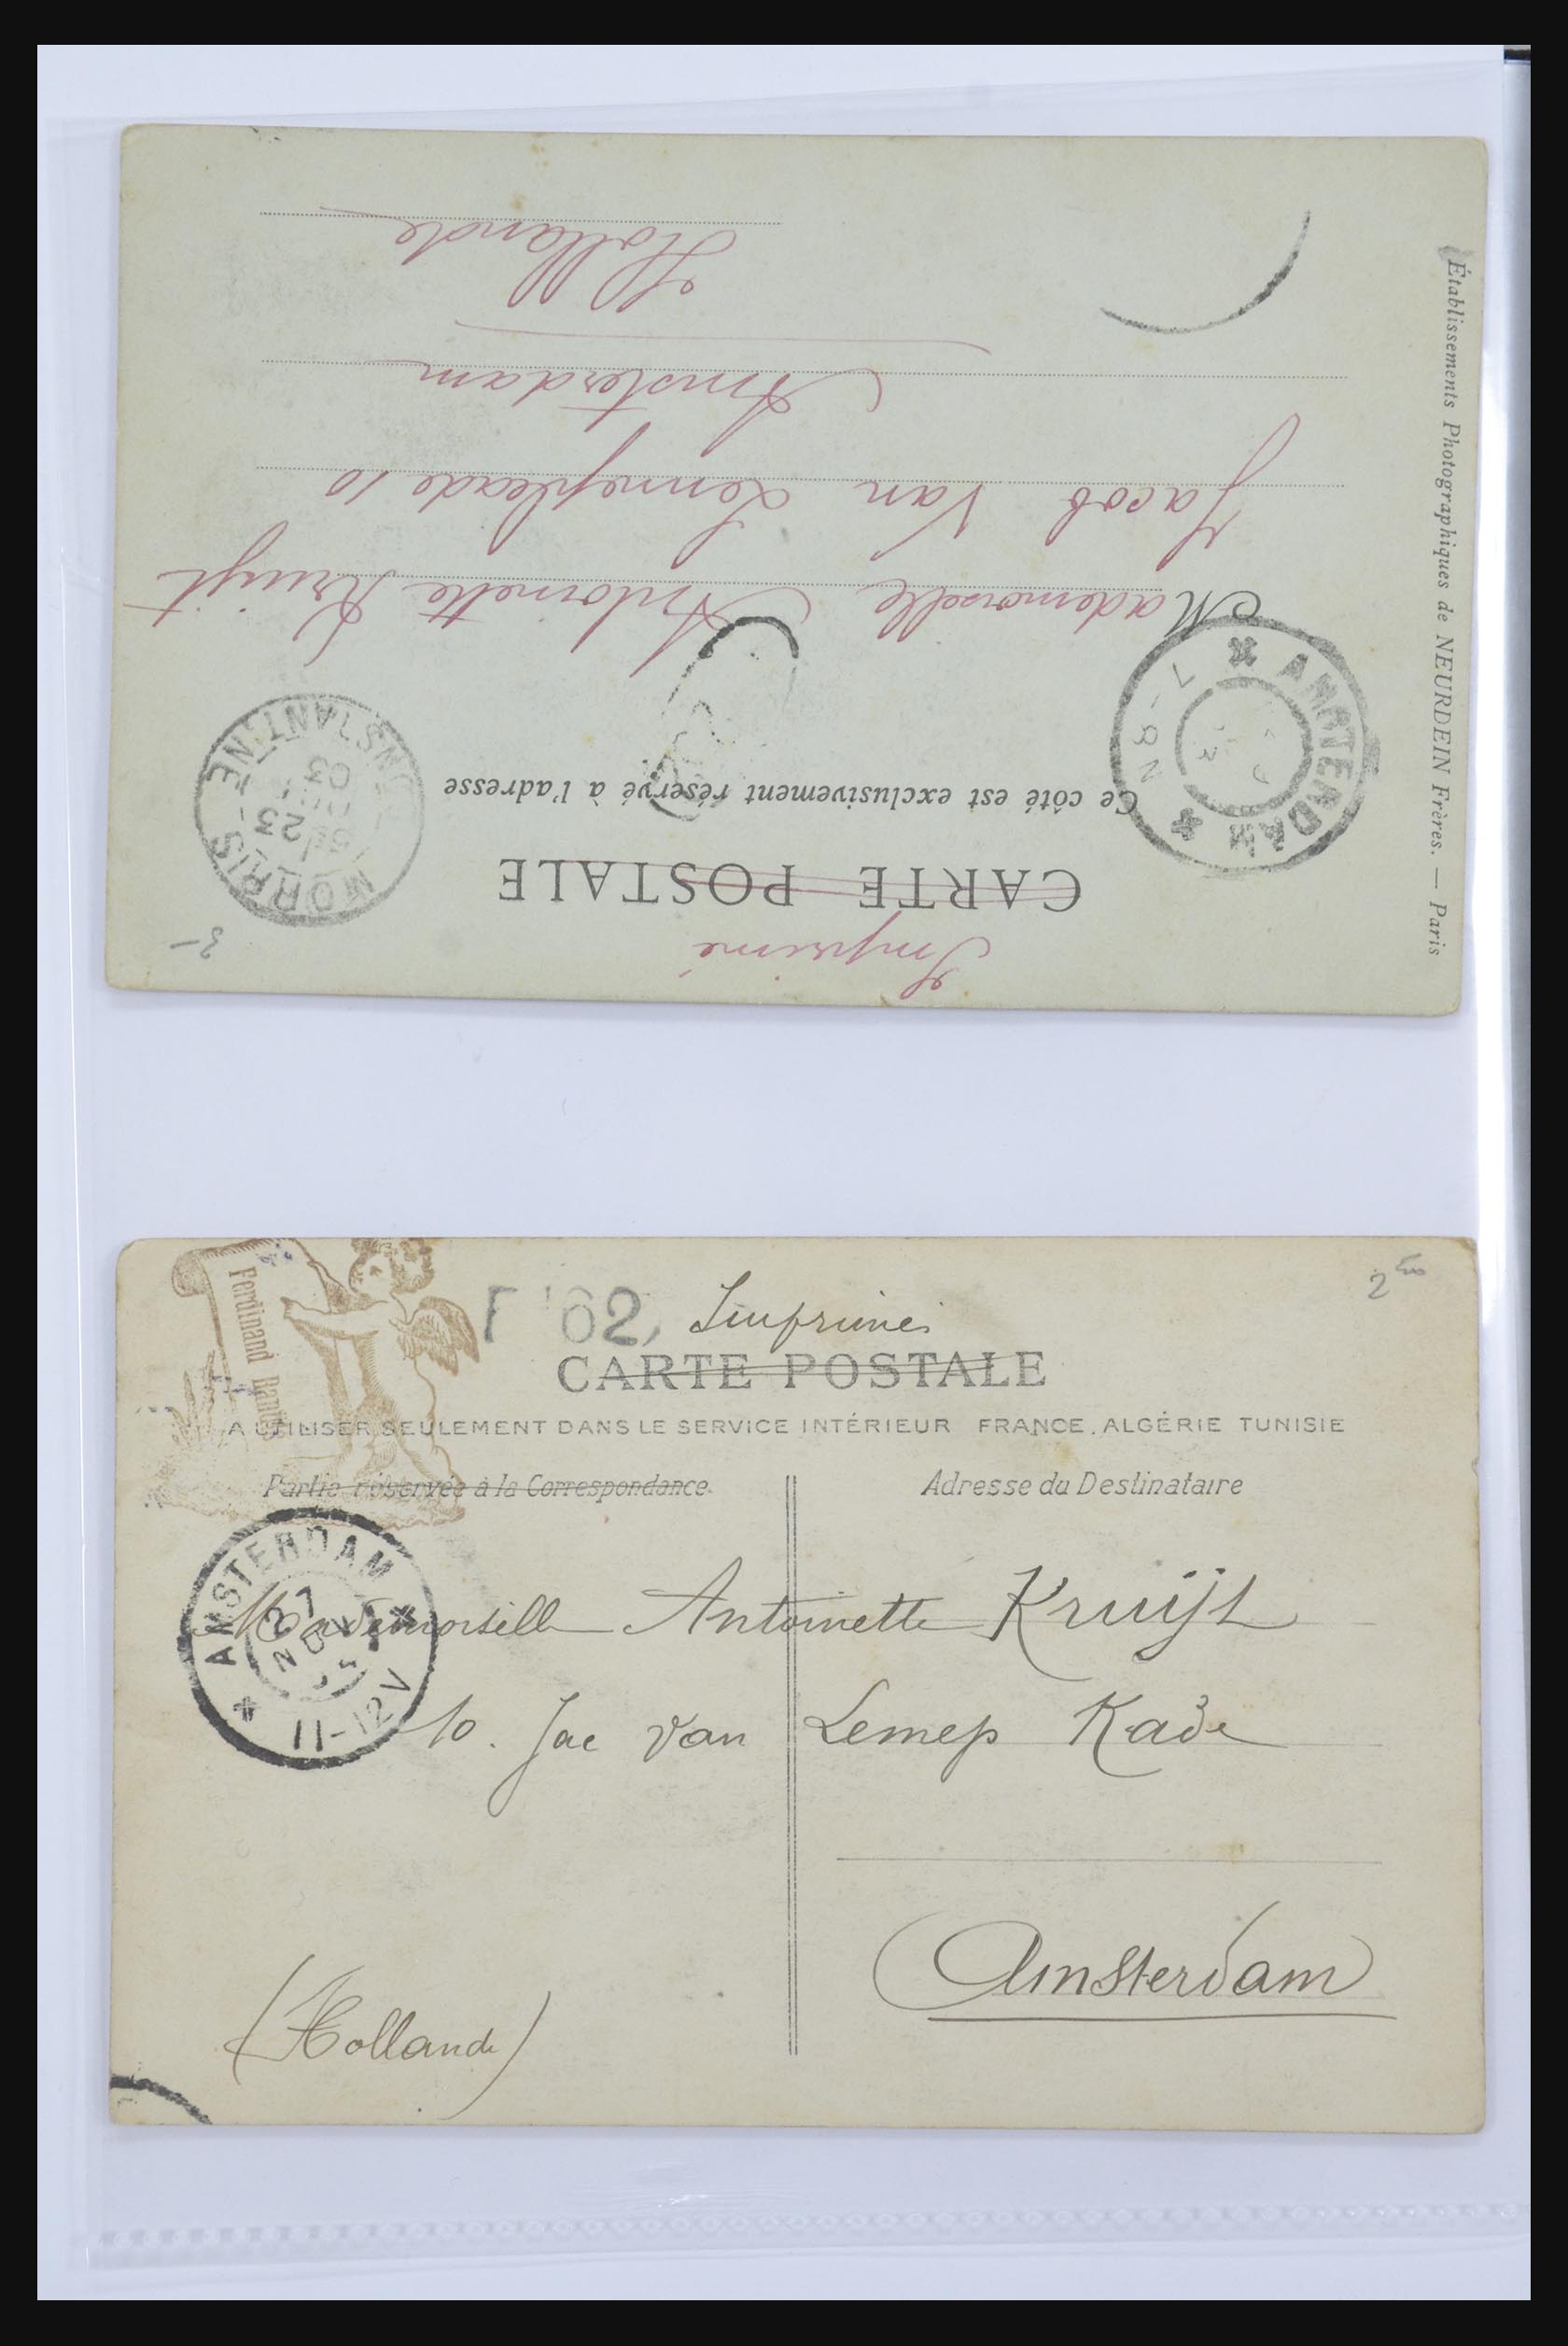 Imprimé
CARTE POSTALE
Ce côté est exclusivement réservé à l'adresse
Mademoiselle Antoinette Kruijt
Jacob Van Lennepkade 10
Amsterdam
Hollande
Établissements Photographiques de NEURDEIN Frères. — Paris
MORRIS
23
03
CONSTANTINE
AMSTERDAM
7-8N
3-
T '62,
Imprimé
2
CARTE POSTALE
A UTILISER SEULEMENT DANS LE SERVICE INTÉRIEUR FRANCE, ALGÉRIE TUNISIE
Partie réservée à la Correspondance
Adresse du Destinataire
Ferdinand
AMSTERDAM
27
NOV
11-12V
Mademoiselle Antoinette Kruijt
10. Jac Van Lennep Kade
Amsterdam
(Hollande)